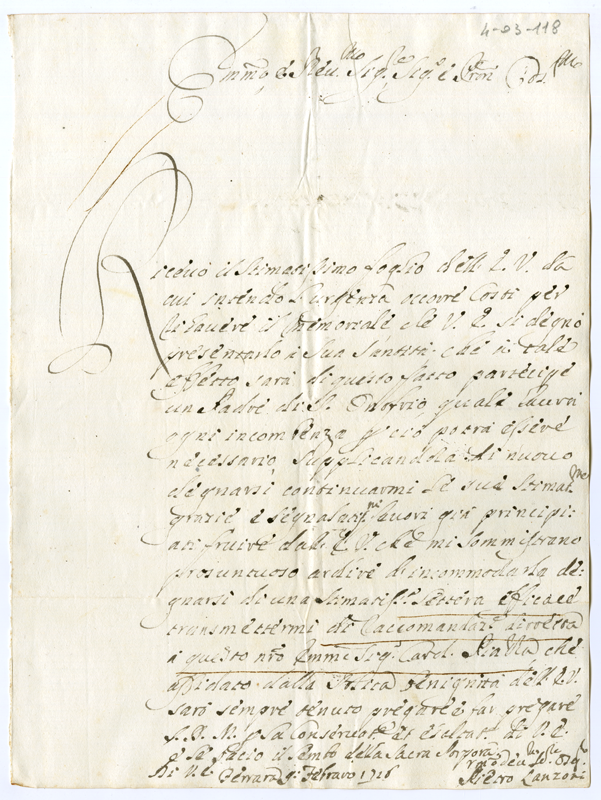 4-03-118
Emmo e Reu.mo Sig.re Sig.re e Pron Cols.mo
Riceuo il stimatissimo foglio dell E. V. da
cui intendo l'urgenza occorre costi per
rihauere il memoriale che V. E. si degnò
presentarlo a Sua Santità, che à tale
effetto sarà di questo fatto partecipe
un Padre di S. Onofrio, quale hauerà
ogni incombenza p cio potrà essere
necessario, supplicandola di nuouo
degnarsi continuarmi le sue stimat.me
grazie e segnalatis.mi fauori già principi:
ati fruire dall' E. V. che mi somministrano
prosuntuoso ardire d'incommodarla de:
gnarsi di una stimatis.a lettera efficace
transmettermi di Raccomandaz.e diretta
a questo nro Emmo Sig.r Card.l che
affidato dalla solita benignità dell' E. V.
sarò sempre tenuto pregare e far pregare
S. D. M. p la Conseruat.ne et esaltat.ne di V. E.
e le facio il lembo della Sacra Porpora
Di V. E. Ferrara Febraro 1716
Pietro Lanzoni